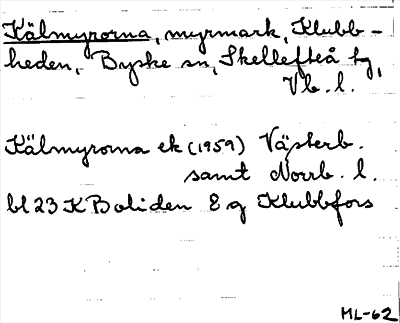 Kälmyrorna, myrmark, Klubb-
heden, Byske sn, Skellefteå tg,
Vb. l.
Kälmyrorna ek (1959) Västerb.
samt Norrb. l.
bl 23 K Boliden 8 g Klubbfors
HL-62